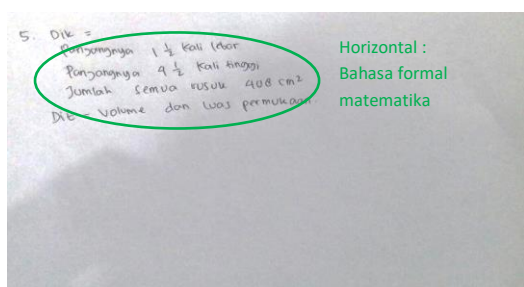 5. Dik =
Panjangnya 1 1/2 kali lebar
Panjangnya 4 1/2 kali tinggi
Jumlah semua rusuk 408 cm²
Dit = Volume dan luas permukaan
Horizontal :
Bahasa formal
matematika